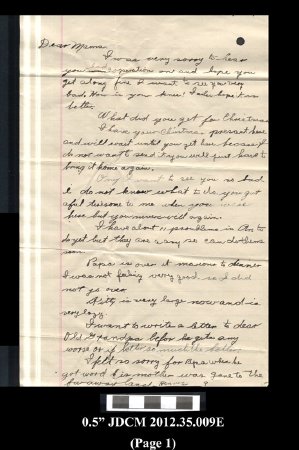 Dear Mama
I was very sorry to hear
you had operation on and hope you
get along fine. I want to see you very
bad. How is your knee? I also hope it is
better.
What did you get for Christmas
I have your Christmas present here
and will wait until you get here because I
do not want to send it you will just have to
bring it home again.
Oh, I want to see you so bad
I do not know what to do. you got
awful tiresome to me when you were
here but you never will again.
I have about 11 problems in to
do yet but they are easy so can do them
soon.
Papa is over at to dinner
I was not feeling very good so I did
not go over.
is very large now and is
very lazy.
I want to write a letter to dear
Old Grandpa before he gets any
worse or if better
I felt so sorry for Papa when he
got word his mother was gone to the
far away land
0.5" JDCM 2012.35.009E
(Page 1)